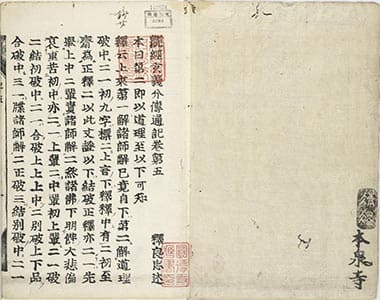 本泉寺
觀經玄義分傳通記卷第五
釋良忠述
本曰第二即以道理至以下可知
釋云上來第一解諸師解已竟自下第二解道理
破中二一初九字標二上言下釋釋中有二初至
齋爲正釋二以此文證以下結破正釋亦二一先
擧上中二輩責諸師解二然諸佛下明佛大悲偏
哀重苦初中亦二一上輩二中輩初上輩二一破
二結初破中二一合破上上上中二別破上下品
合破中三一牒諸師解二正破三結別破中二一